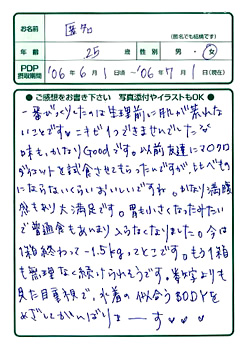 お名前
匿名
(匿名でも結構です)
年齢 25歳 性別 男・女
PDP摂取期間 '06年6月1日頃〜'06年7月1日(現在)
●ご感想をお書き下さい 写真添付やイラストもOK●
一番びっくりしたのは生理前に肌が荒れな
いことです♡ニキビ1つできませんでした。
味も、かなりGoodです。以前友達にマクロ
ダイエットを試食させてもらったんですが、ヒヒべもの
にならないくらいおいしいですね。かなり満腹
感もあり大満足です。胃も小さくなったみたい
で普通食もあんまり入らなくなりました。今は
1箱終わって-1.5kgってとこです。もう1箱
も無理なく続けられそうです。数字よりも
見た目重視で、水着の似合うBODYを
めざしてがんばりまーす♡♡♡